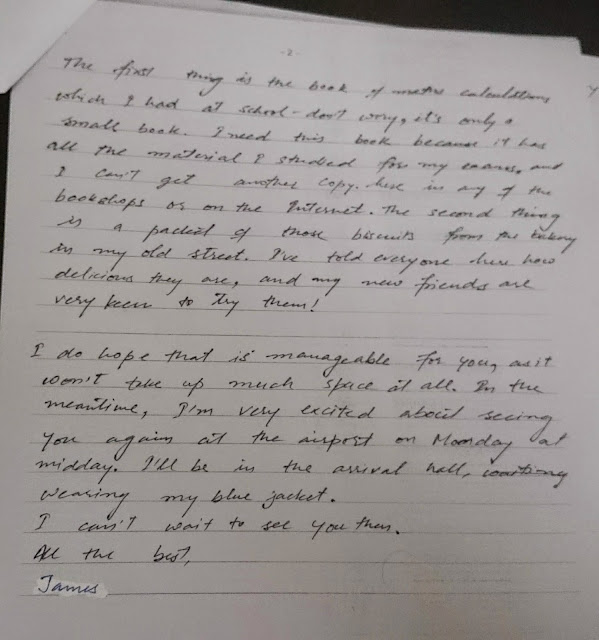 -2-
The first thing is the book of maths calculations
which I had at school - don't worry, it's only a
small book. I need this book because it has
all the material I studied for my exams, and
I can't get another copy here in any of the
bookshops or on the Internet. The second thing
is a packet of those biscuits from the bakery
in my old street. I've told everyone here how
delicious they are, and my new friends are
very keen to try them!
I do hope that is manageable for you, as it
won't take up much space at all. In the
meantime, I'm very excited about seeing
you again at the airport on Monday at
midday. I'll be in the arrival hall, waiting
wearing my blue jacket.
I can't wait to see you then.
All the best,
James